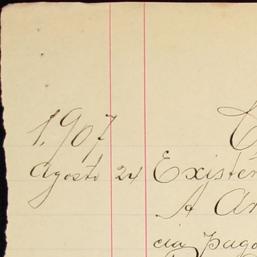 1907
Agosto 24 Existen
A An
cia, pago